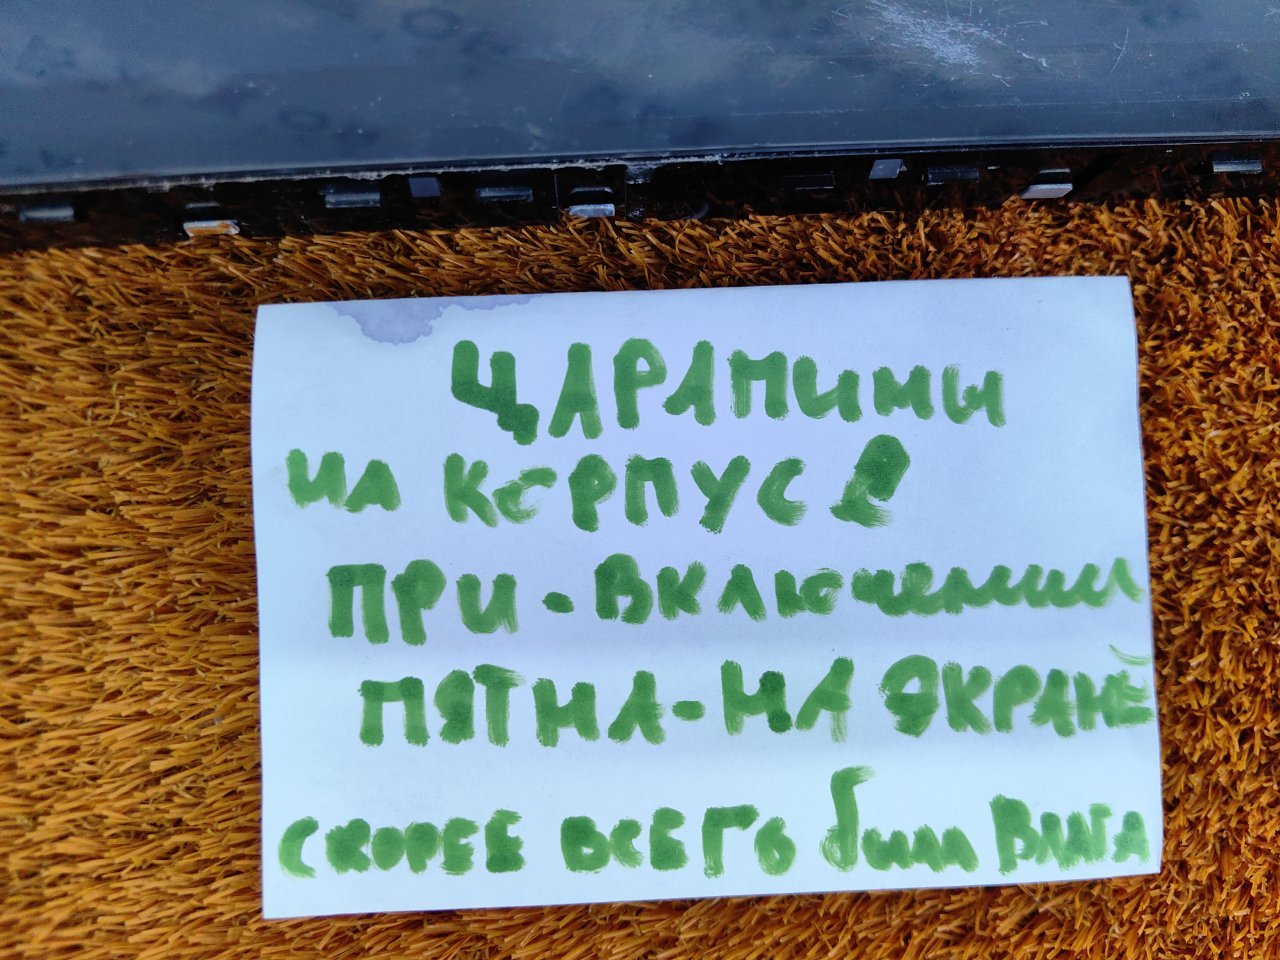 ЦАРАПИНЫ
НА КОРПУСЕ
ПРИ-ВКЛЮЧЕНИИ
ПЯТНА-НА ЭКРАНЕ
СКОРЕЕ ВСЕГО была ВЛАГА